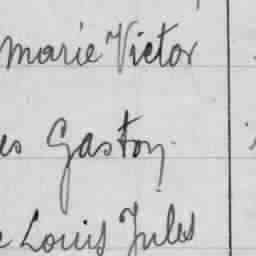 marie Victor
es Gaston
e Louis Jules